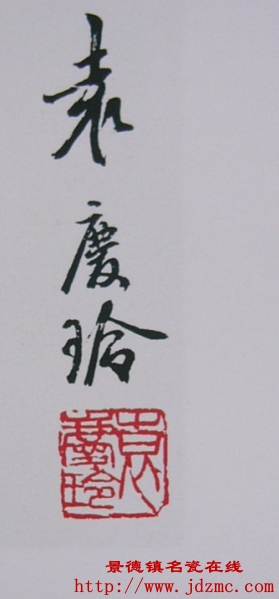 袁
慶
玲
袁
慶玲
景德镇名瓷在线
http://www.jdzmc.com